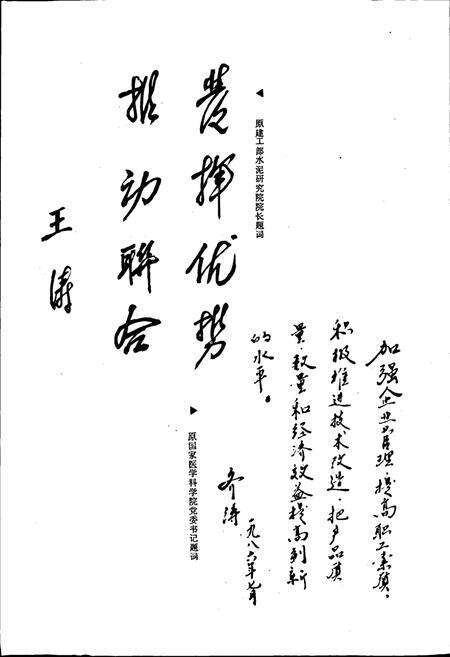 ◀ 原建工部水泥研究院院长题词
发挥优势
推动联合
王涛
加强企业管理,提高职工素质,
积极推进技术改造,把产品质
量、数量和经济效益提高到新
的水平。
齐涛
一九八六年七月
▶ 原国家医学科学院党委书记题词